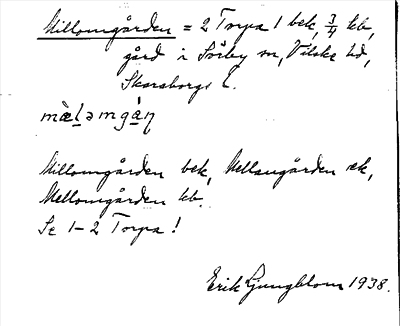 Millomgården = 2 Torpa 1 bek, 3/4 kb,
gård i Sörby sn, Vilske hd,
Skaraborgs l.
mæ̀ḻəmgà̱ṇ
Millomgården bek, Mellangården æk,
Mellomgården kb.
Se 1-2 Torpa!
Erik Ljungblom 1938.